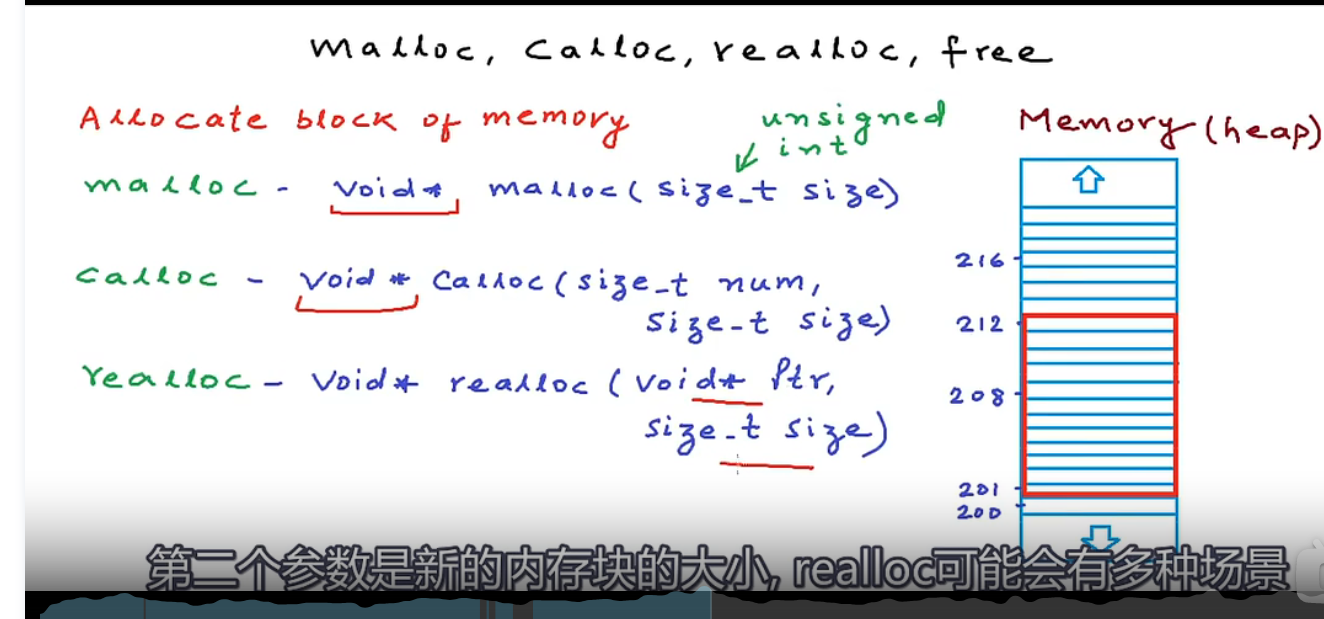 malloc, calloc, realloc, free
Allocate block of memory
unsigned
int
Memory (heap)
malloc - void* malloc(size_t size)
calloc - void * Calloc(size_t num,
size_t size)
realloc - void* realloc (void* Ptr,
size_t size)
216
212
208
201
200
第二个参数是新的内存块的大小, realloc可能会有多种场景